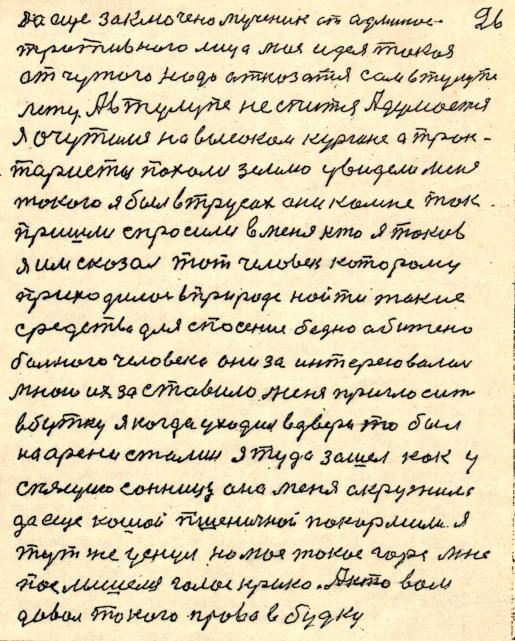 26
да еще заключено мученик от админис-
тротивного лица моя идея такая
от чутого надо отказатся сам в тулупе
лежу. А в тулупе не спится А думается
Я очутился на высоком кургане а трак-
таристы пахали землю увидели меня
такого я был в трусах они ка мне так
пришли спросили в меня хто я таков
я им сказал тот человек которому
приходилос в природе найти такие
средства для спасение бедно обижено
болного человека они за интересовалис
мною их заставило меня пригласит
в бутку я когда уходил в двери то был
на арени сталин я туда зашел как у
спящию сонницу она меня акружила
да еще кашой пшеничной покормили. Я
тут же уснул на мое такое горе мне
послышелся голос крико. А кто вам
давал такого права в будку